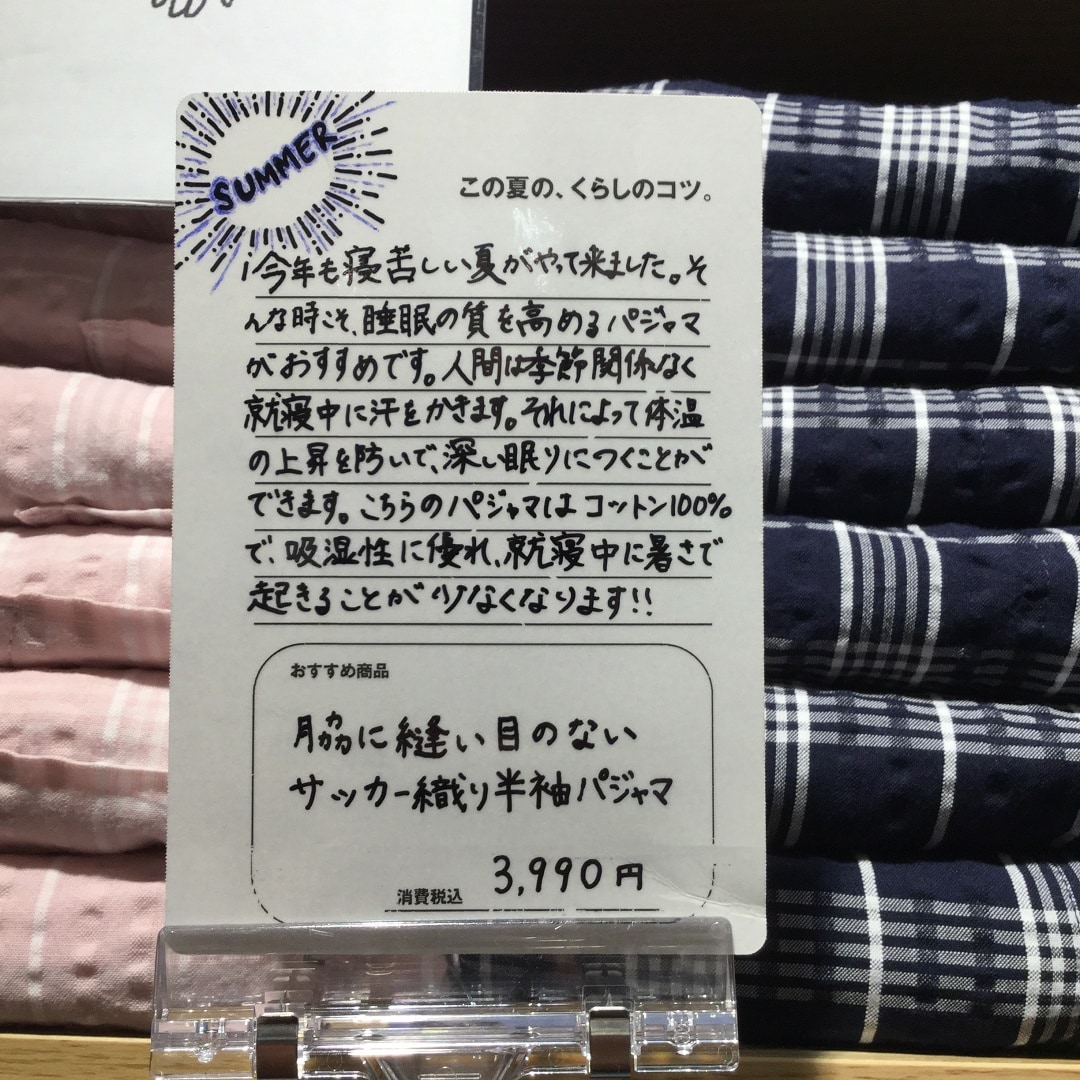 SUMMER
この夏の、くらしのコツ。
今年も寝苦しい夏がやって来ました。そ
んな時こそ、睡眠の質を高めるパジャマ
がおすすめです。人間は季節関係なく
就寝中に汗をかきます。それによって体温
の上昇を防いで、深い眠りにつくことが
できます。こちらのパジャマはコットン100%
で、吸湿性に優れ、就寝中に暑さで
起きることが少なくなります!!
おすすめ商品
脇に縫い目のない
サッカー織り半袖パジャマ
消費税込 3,990円